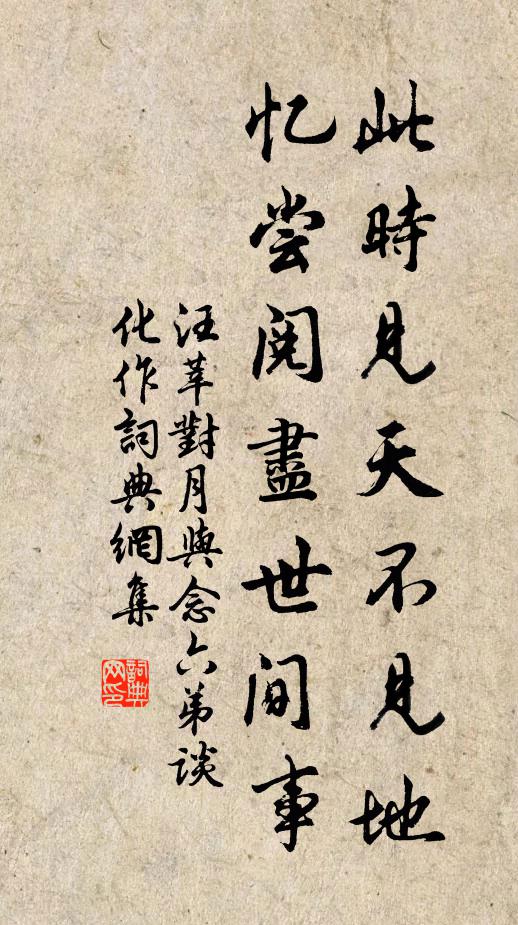 此時見天不見地
忆尝阅盡世间事
汪莘對月與念六弟谈
化作詞典網集
詞典网印